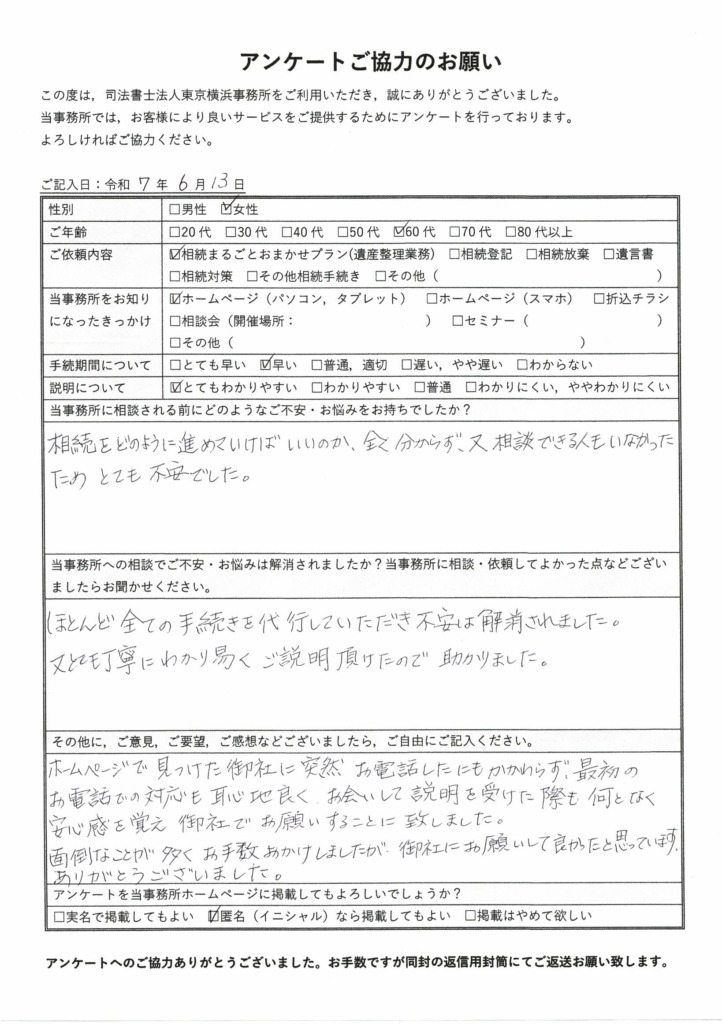 アンケートご協力のお願い
この度は，司法書士法人東京横浜事務所をご利用いただき，誠にありがとうございました。
当事務所では，お客様により良いサービスをご提供するためにアンケートを行っております。
よろしければご協力ください。
ご記入日：令和 7 年 6 月 13 日
性別 □男性 ☑女性
ご年齢 □20代 □30代 □40代 □50代 ☑60代 □70代 □80代以上
ご依頼内容 ☑相続まるごとおまかせプラン(遺産整理業務) □相続登記 □相続放棄 □遺言書
□相続対策 □その他相続手続き □その他（ ）
当事務所をお知り ☑ホームページ（パソコン，タブレット） □ホームページ（スマホ） □折込チラシ
になったきっかけ □相談会（開催場所： ） □セミナー（ ）
□その他（ ）
手続期間について □とても早い ☑早い □普通，適切 □遅い，やや遅い □わからない
説明について ☑とてもわかりやすい □わかりやすい □普通 □わかりにくい，ややわかりにくい
当事務所に相談される前にどのようなご不安・お悩みをお持ちでしたか？
相続をどのように進めていけばいいのか、全く分からず、又 相談できる人もいなかった
ため とても 不安でした。
当事務所への相談でご不安・お悩みは解消されましたか？当事務所に相談・依頼してよかった点などござい
ましたらお聞かせください。
ほとんど全ての手続きを代行していただき不安は解消されました。
又とても丁寧にわかり易く ご説明頂けたので 助かりました。
その他に，ご意見，ご要望，ご感想などございましたら，ご自由にご記入ください。
ホームページで見つけた御社に突然 お電話したにもかかわらず、最初の
お電話での対応も心地良く、お会いして説明を受けた際も何となく
安心感を覚え 御社で お願いすることに致しました。
面倒なことが多くお手数おかけしましたが、御社にお願いして良かったと思っています。
ありがとうございました。
アンケートを当事務所ホームページに掲載してもよろしいでしょうか？
□実名で掲載してもよい ☑匿名（イニシャル）なら掲載してもよい □掲載はやめて欲しい
アンケートへのご協力ありがとうございました。お手数ですが同封の返信用封筒にてご返送お願い致します。